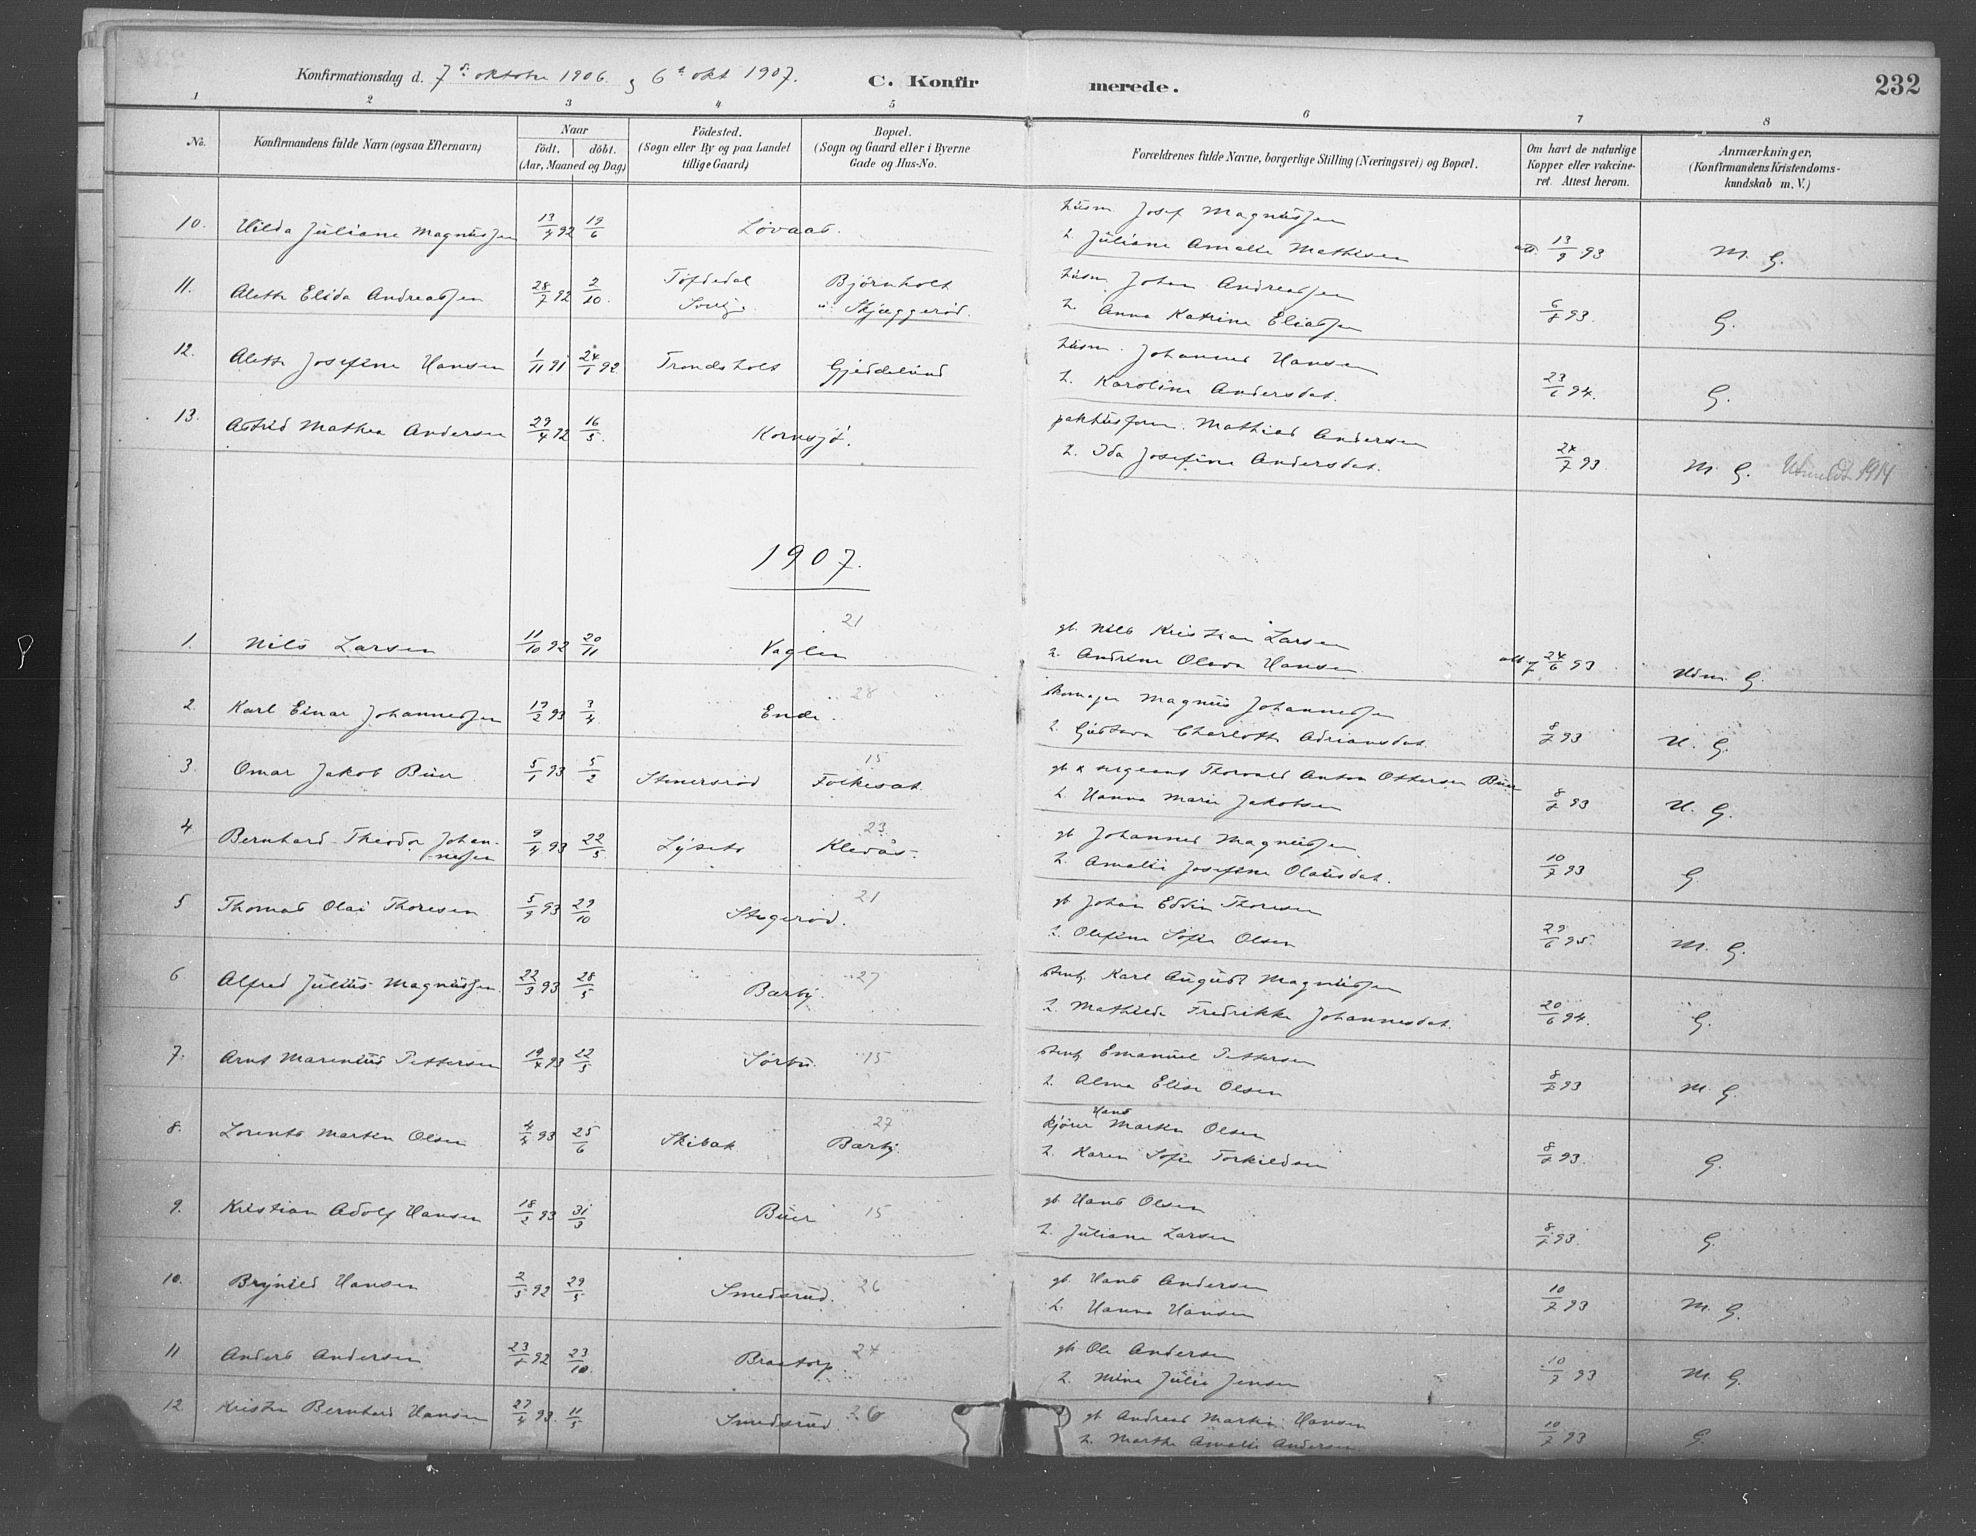 Konfirmationsdag d. 7de oktober 1906 og 6te okt 1907. C. Konfirmerede. 232
1 2 3 4 5 6 7 8
No. Konfirmandens fulde Navn (ogsaa Efternavn) Naar födt. döbt. (Aar, Maaned og Dag) Födested. (Sogn eller By og paa Landet tillige Gaard) Bopæl. (Sogn og Gaard eller i Byerne Gade og Hus-No. Forældrenes fulde Navne, borgerlige Stilling (Næringsvei) og Bopæl. Om havt de naturlige Kopper eller vakcineret. Attest herom. Anmærkninger. (Konfirmandens Kristendomskundskab m. V.)
10. Hilda Juliane Magnussen 13/4 92 19/6 Løvaas. husm Josef Magnussen
h. Juliane Amalie Mathisen att. 13/9 93 M. G.
11. Alette Elida Andreassen 28/7 92 2/10. Töfdedal Bjørnholt husm Johan Andreassen
Sverige. u. Skjæggerød. h. Anna Katrine Eliassen 6/7 93. G.
12. Alette Josefine Hansen 1/11 91 24/1 92 Trondsholt Gjeddelund husm. Johannes Hansen
h. Karoline Andersdat. 23/6 94. G.
13. Astrid Mathea Andersen 29/4 92 16/5. Kornsjø. pakhusform. Mathias Andersen
h. Ida Josefine Andersdat. 24/7 93. M. G. Utmeldt 1914
1907.
1. Nils Larsen 11/10 92 20/11 Vaglen 21 gb. Nils Kristian Larsen
h. Andrine Olava Hansen att. 24/6 93 Udm. G.
2. Karl Einar Johannessen 19/2 93 3/4 Ende. 28 skomager Magnus Johannessen
h. Gustava Charlotte Adriansdat. 8/7 93 U. G.
3. Omar Jakob Buer 5/1 93 5/2 Stenersrød Folkesat. 15 gb & sergeant Thorvald Anton Ottersen Buer
h. Hanna Marie Jakobsen 8/7 93 U. G.
4. Bernhard Theodor Johannessen 9/4 93 22/5 Lyseto Klevås. 23 gb Johannes Magnussen
h. Amalie Josefine Olausdat. 10/7 93 G.
5 Thomas Olai Thoresen 5/9 93 29/10 Stegerød. 21 gb Johan Edvin Thoresen
h. Olefine Sofie Olsen 29/6 95. M. G.
6 Alfred Julius Magnussen. 22/3 93 28/5 Bærby. 27 stenh. Karl August Magnussen
h. Mathilde Fredrikke Johannesdat. 20/6 94. G.
7. Arnt Marenius Pettersen 19/4 93 22/5 Sørbu. 15 stenh. Emanuel Pettersen
h. Alma Elise Olsen 8/7 93 M. G.
8. Lorents Martin Olsen 4/4 93 25/6 Skibak Bærby. 27 kjører Hans Martin Olsen
h. Karen Sofie Torkildsen 8/7 93. G.
9. Kristian Adolf Hansen 18/2 93 31/3 Buer 15 gb. Hans Olsen
h. Juliane Larsen 8/7 93. G.
10. Brynild Hansen 2/5 92 29/5 Smedsrud. 26 gb. Hans Andersen
h. Hanna Hansen 10/7 93 M. G.
11 Anders Andersen 23/8 92 23/10. Braatorp 24 gb Ole Andersen
h. Mina Julie Jensen 10/7 93 M. G.
12. Kristen Bernhard Hansen 27/4 93. 11/5 Smedsrud. 26 gb Andreas Martin Hansen
h. Marthe Amalie Andersen 10/7 93 G.